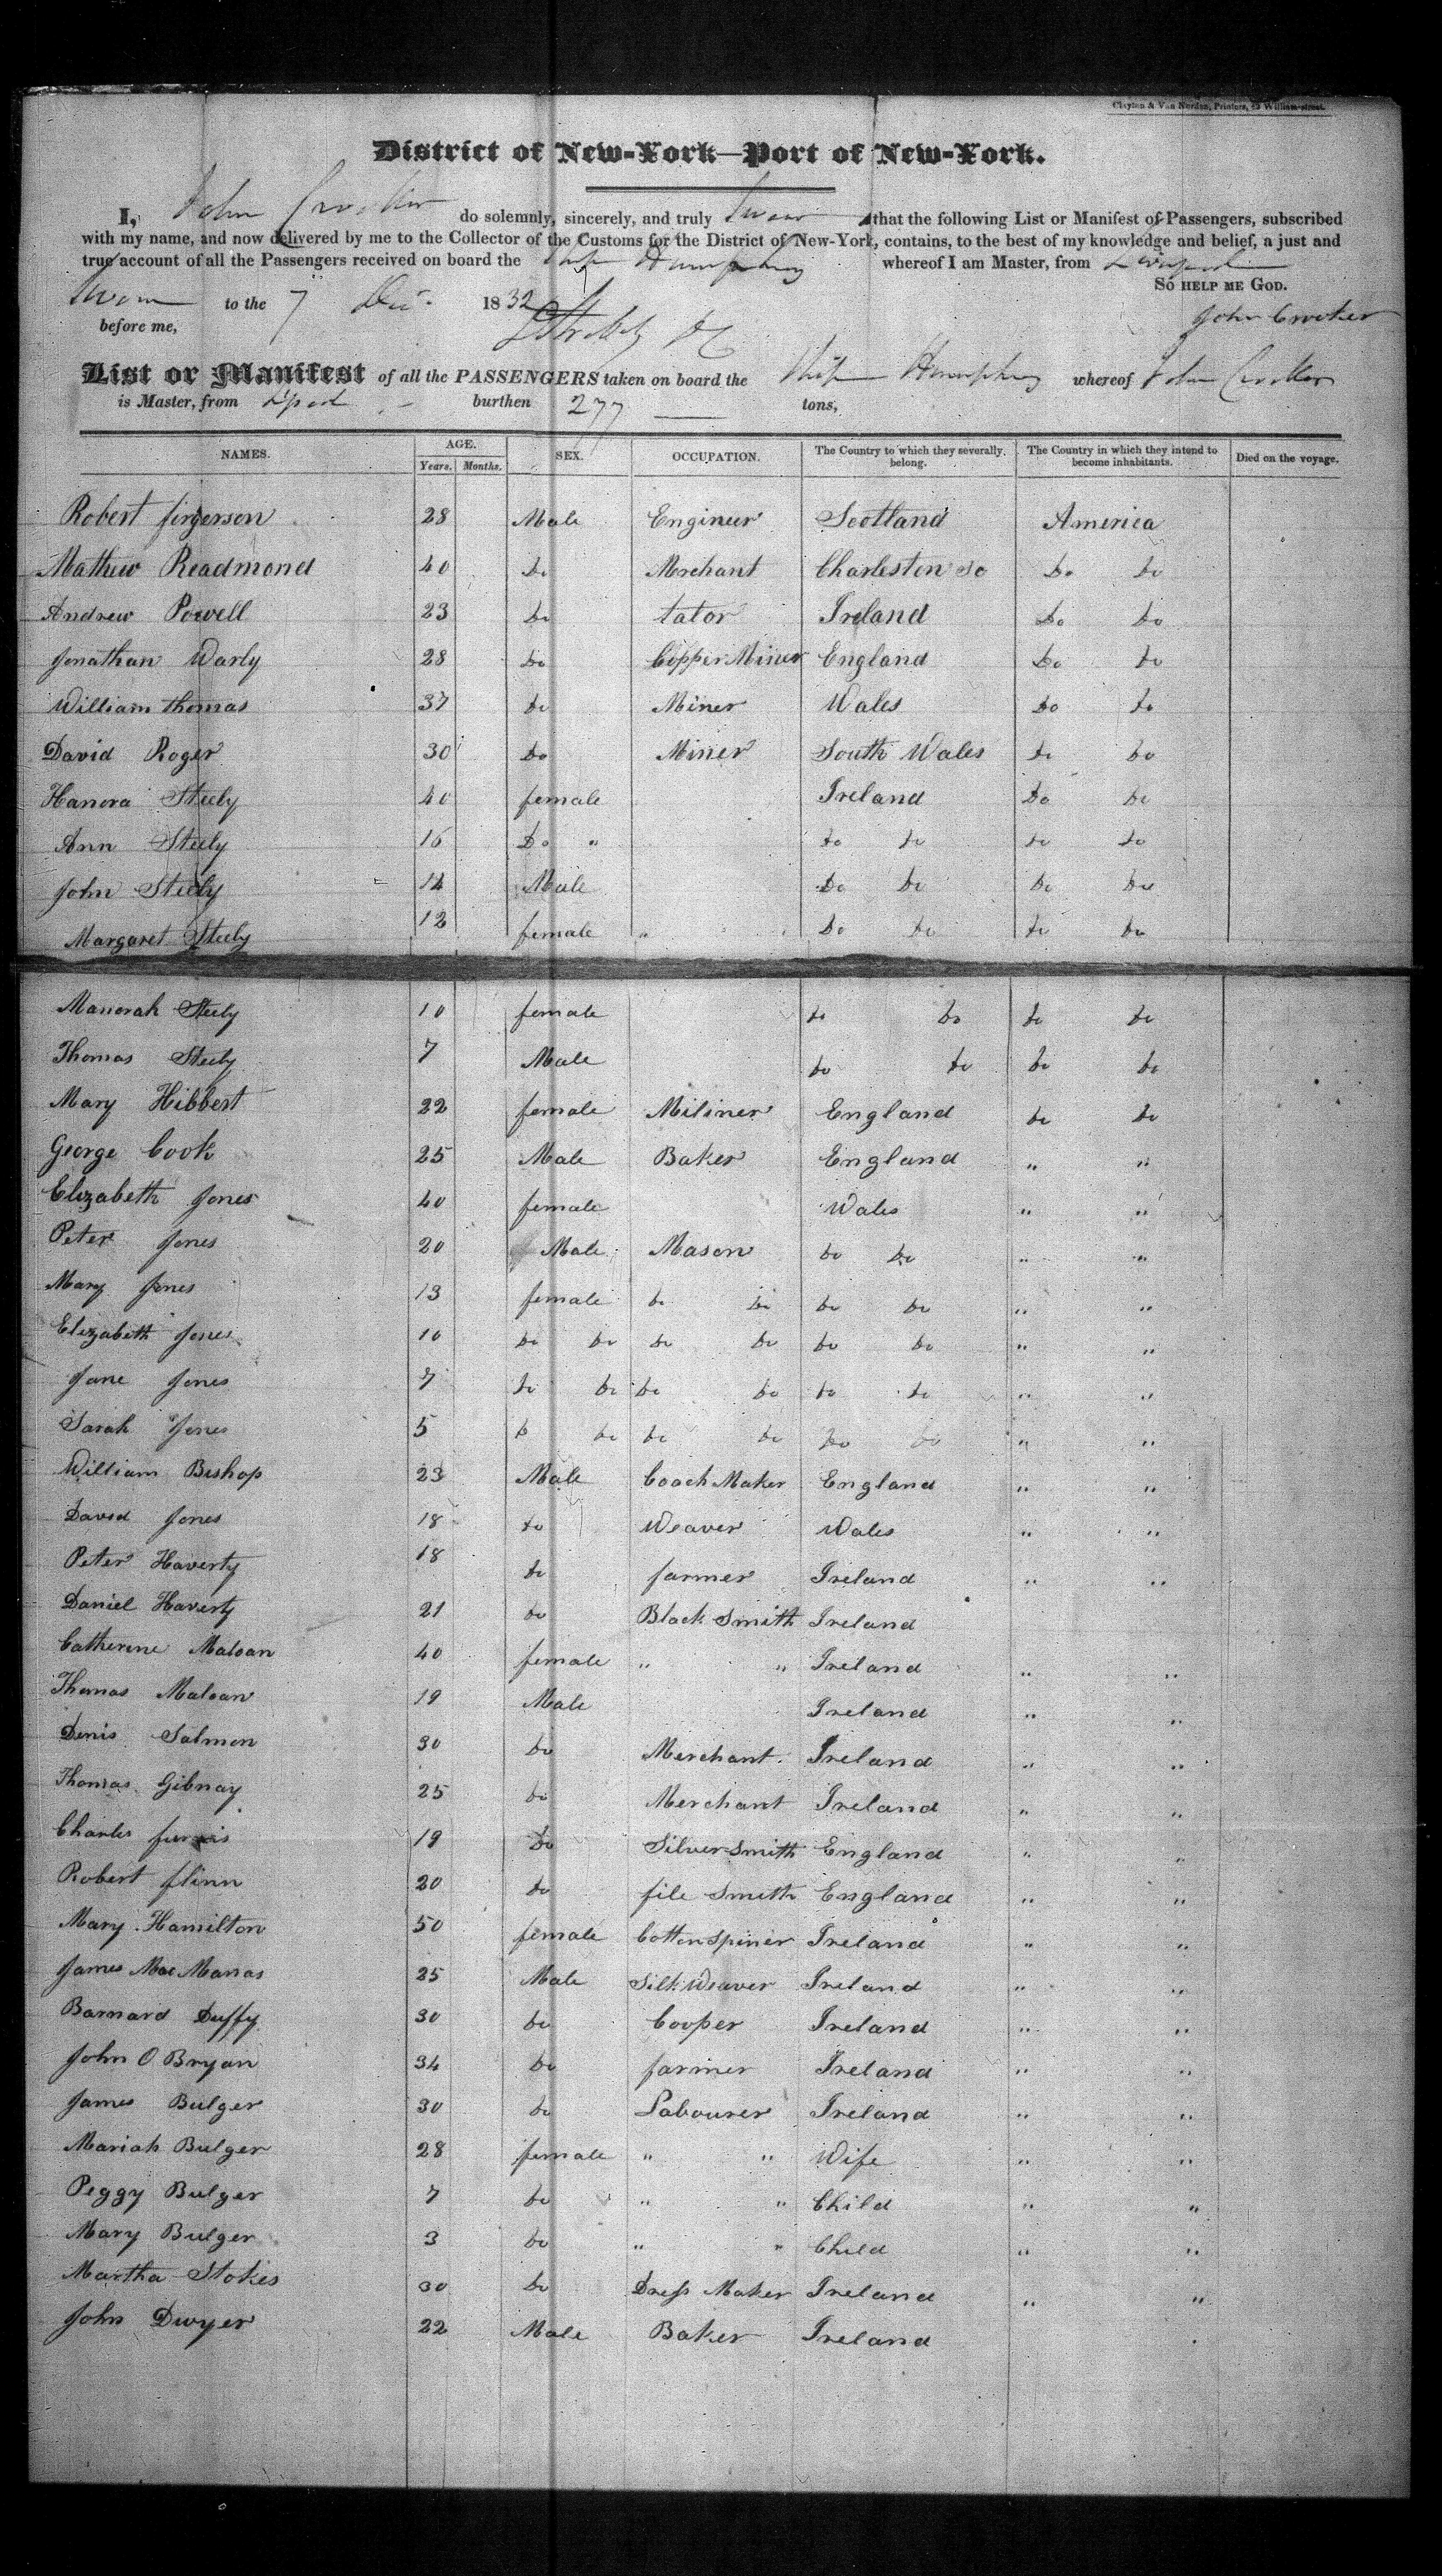 Clayton & Van Norden, Printers, 49 William-street.
District of New-York—Port of New-York.
I, John Crocker do solemnly, sincerely, and truly Swear that the following List or Manifest of Passengers, subscribed
with my name, and now delivered by me to the Collector of the Customs for the District of New-York, contains, to the best of my knowledge and belief, a just and
true account of all the Passengers received on board the Ship Humphrey whereof I am Master, from Liverpool
SO HELP ME GOD.
Sworn to the 7 Dec. 1832
before me,
John Crocker
List or Manifest of all the PASSENGERS taken on board the Ship Humphrey whereof John Crocker
is Master, from Lpool burthen 277 tons,
NAMES. AGE. Years. Months. SEX. OCCUPATION. The Country to which they severally belong. The Country in which they intend to become inhabitants. Died on the voyage.
Robert firgerson 28 Male Engineer Scotland America
Mathew Readmond 40 Do Merchant Charleston So Do Do
Andrew Powell 23 Do tator Ireland Do Do
Jonathan Warly 28 Do Copper Miner England Do Do
William thomas 37 Do Miner Wales Do Do
David Roger 30 Do Miner South Wales Do Do
Hanora Steely 40 female Ireland Do Do
Ann Steely 16 Do " Do Do Do Do
John Steely 14 Male Do Do Do Do
Margaret Steely 12 female " Do Do Do Do
Manorah Steely 10 female Do Do Do Do
Thomas Steely 7 Male Do Do Do Do
Mary Hibbert 22 female Miliner England Do Do
George Cook 25 Male Baker England " "
Elizabeth Jones 40 female Wales " "
Peter Jones 20 Male Mason Do Do " "
Mary Jones 13 female Do Do Do Do " "
Elizabeth Jones 10 Do Do Do Do Do Do " "
Jane Jones 7 Do Do Do Do Do Do " "
Sarah Jones 5 Do Do Do Do Do Do " "
William Bishop 23 Male Coach Maker England " "
David Jones 18 Do Weaver Wales " "
Peter Haverty 18 Do farmer Ireland " "
Daniel Haverty 21 Do Black Smith Ireland
Catherine Maloan 40 female " " Ireland " "
Thomas Maloan 19 Male Ireland " "
Denis Salmon 30 Do Merchant Ireland " "
Thomas Gibnay 25 Do Merchant Ireland " "
Charles 19 Do Silversmith England " "
Robert flinn 20 Do file Smith England " "
Mary Hamilton 50 female Cotton Spiner Ireland " "
James Mac Manas 25 Male Silk Weaver Ireland " "
Barnard Duffy 30 Do Cooper Ireland " "
John O Bryan 34 Do farmer Ireland " "
James Bulger 30 Do Labourer Ireland " "
Mariah Bulger 28 female " " Wife " "
Peggy Bulger 7 Do " " Child " "
Mary Bulger 3 Do " " Child " "
Martha Stokes 30 Do Dress Maker Ireland " "
John Dwyer 22 Male Baker Ireland